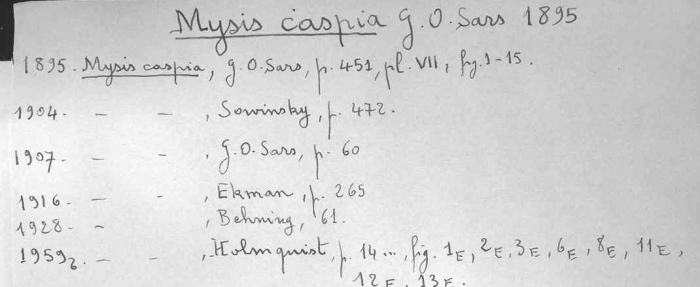 Mysis caspia G.O. Sars 1895
1895. Mysis caspia, G.O. Sars, p. 451, pl. VII, fig. 1-15.
1904. - - , Sowinsky, p. 472.
1907. - - , G.O. Sars, p. 60
1916. - - , Ekman, p. 265
1928. - , Behning, 61.
1959₂. - - , Holmquist, p. 14..., fig. 1E, 2E, 3E, 6E, 8E, 11E,
12E, 13E.